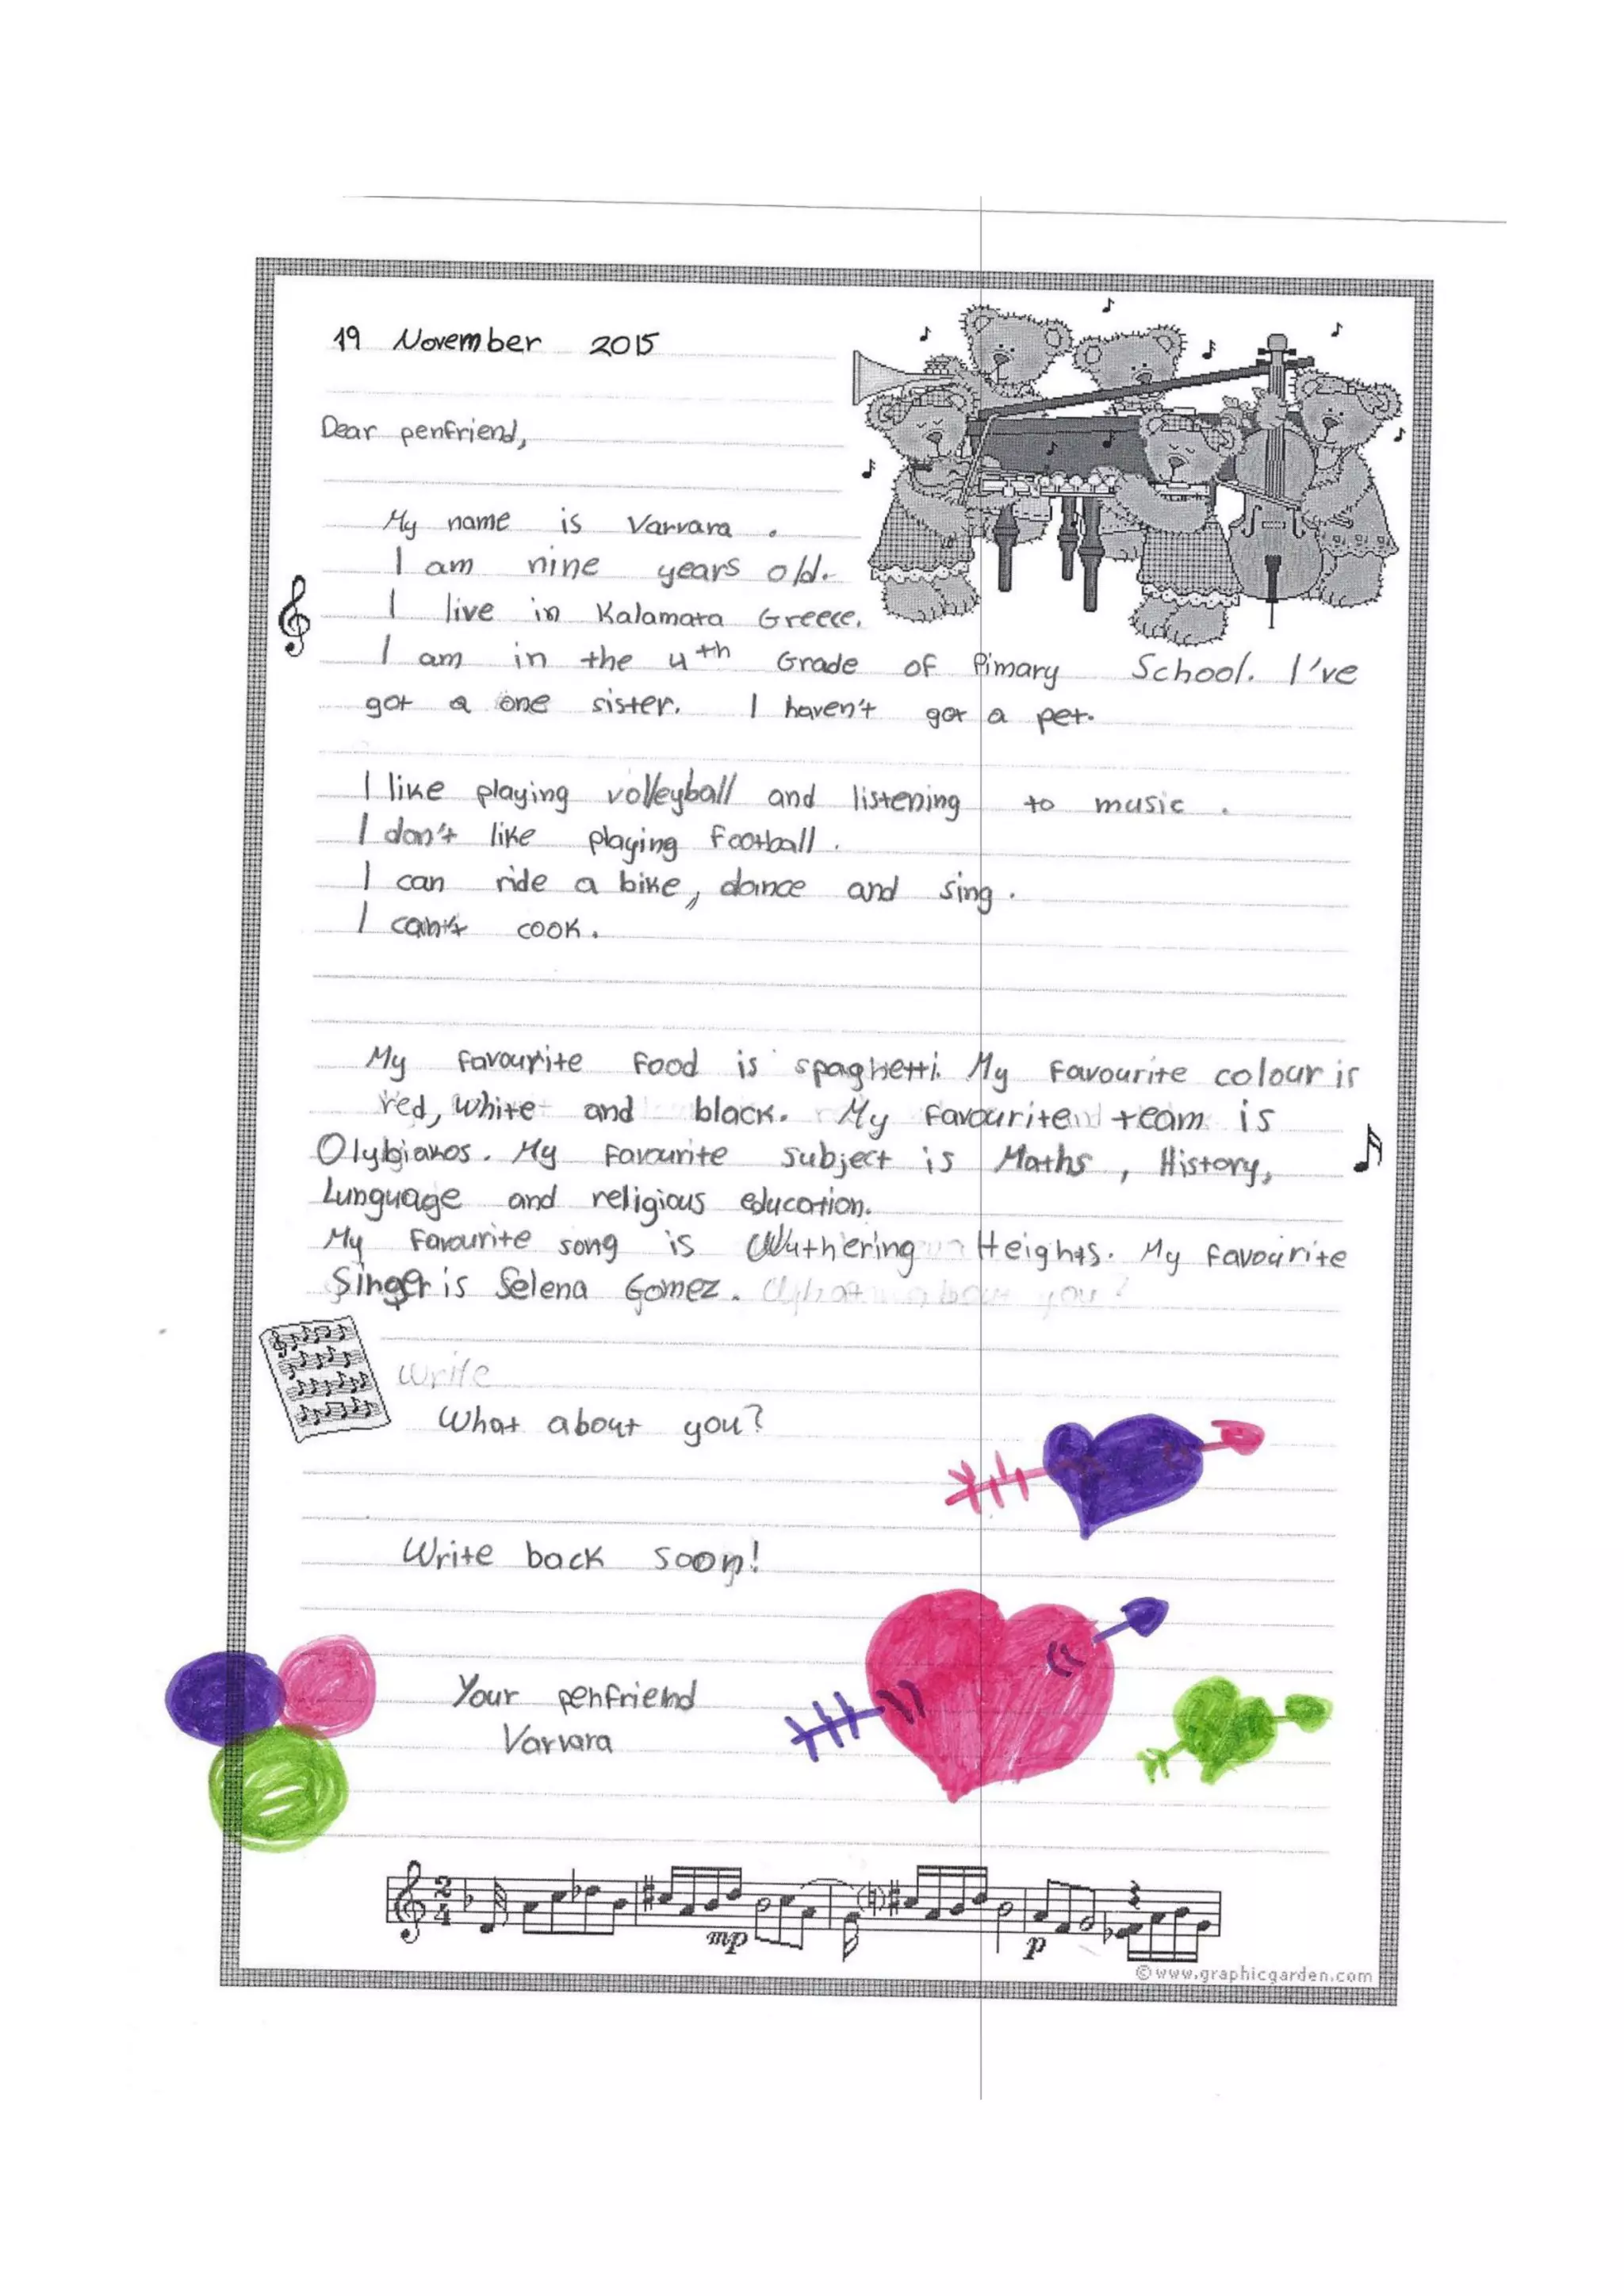 19 November 2015
Dear penfriend,
My name is Varvara .
I am nine years old.
I live in Kalamata Greece.
I am in the 4th Grade of Pimary School. I've
got a one sister. I haven't got a pet.
I like playing volleyball and listening to music .
I don't like playing football .
I can ride a bike, dance and sing .
I can't cook .
My favourite food is spaghetti. My favourite colour is
red, white and black. My favourite team is
Olybiakos. My favourite subject is Maths , History,
Lunguage and religious education.
My favourite song is Wuthering Heights. My favourite
Singer is Selena Gomez . What about you?
Write
What about you?
Write back soon!
Your penfriend
Varvara
mp
p
©www.graphicgarden.com